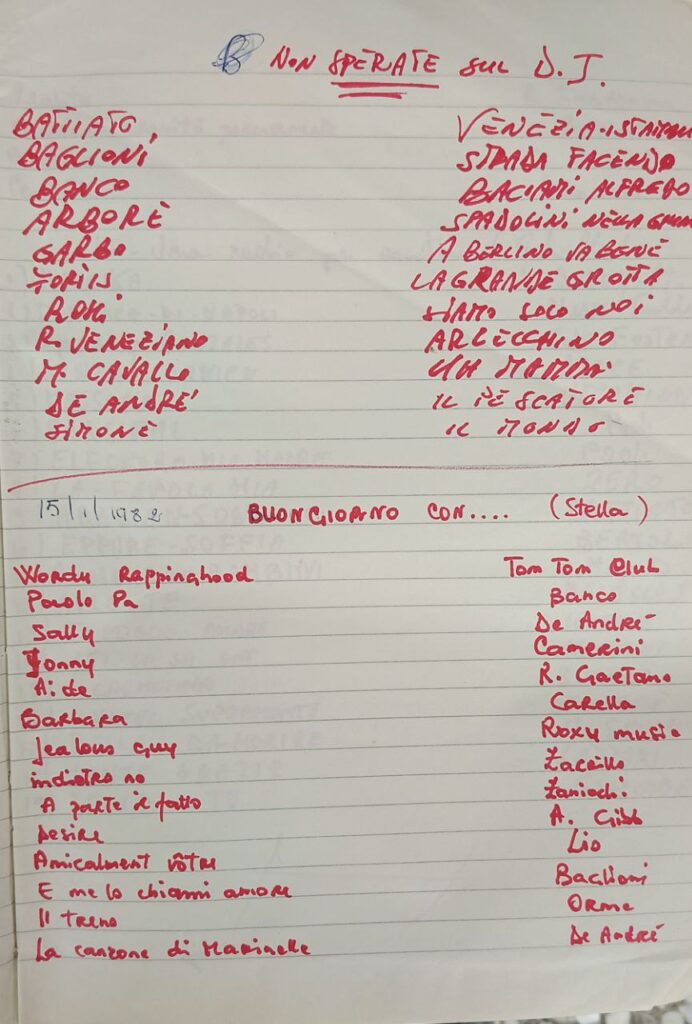 NON SPERATE SUL D.J.
BATTIATO, VENEZIA-ISTAMBUL
BAGLIONI STRADA FACENDO
BANCO BACIAMI ALFREDO
ARBORE SPADOLINI NELLA
GARBO A BERLINO VA BENE
FORTIS LA GRANDE GROTTA
ROSSI SIAMO SOLO NOI
R. VENEZIANO ARLECCHINO
M. CAVALLO UH MAMMA
DE ANDRE' IL PESCATORE
SIMONE IL MONDO
15/1/1982 BUONGIORNO CON.... (Stella)
Wordy Rappinghood Tom Tom Club
Paolo Pa Banco
Sally De André
Jonny Camerini
Aida R. Gaetano
Barbara Carella
Jealous Guy Roxy music
indietro no Zarrillo
A parte il fatto Zanicchi
Desire A. Gibb
Amicalment vôtre Lio
E me lo chiami amore Baglioni
Il treno Orme
La canzone di Marinella De André